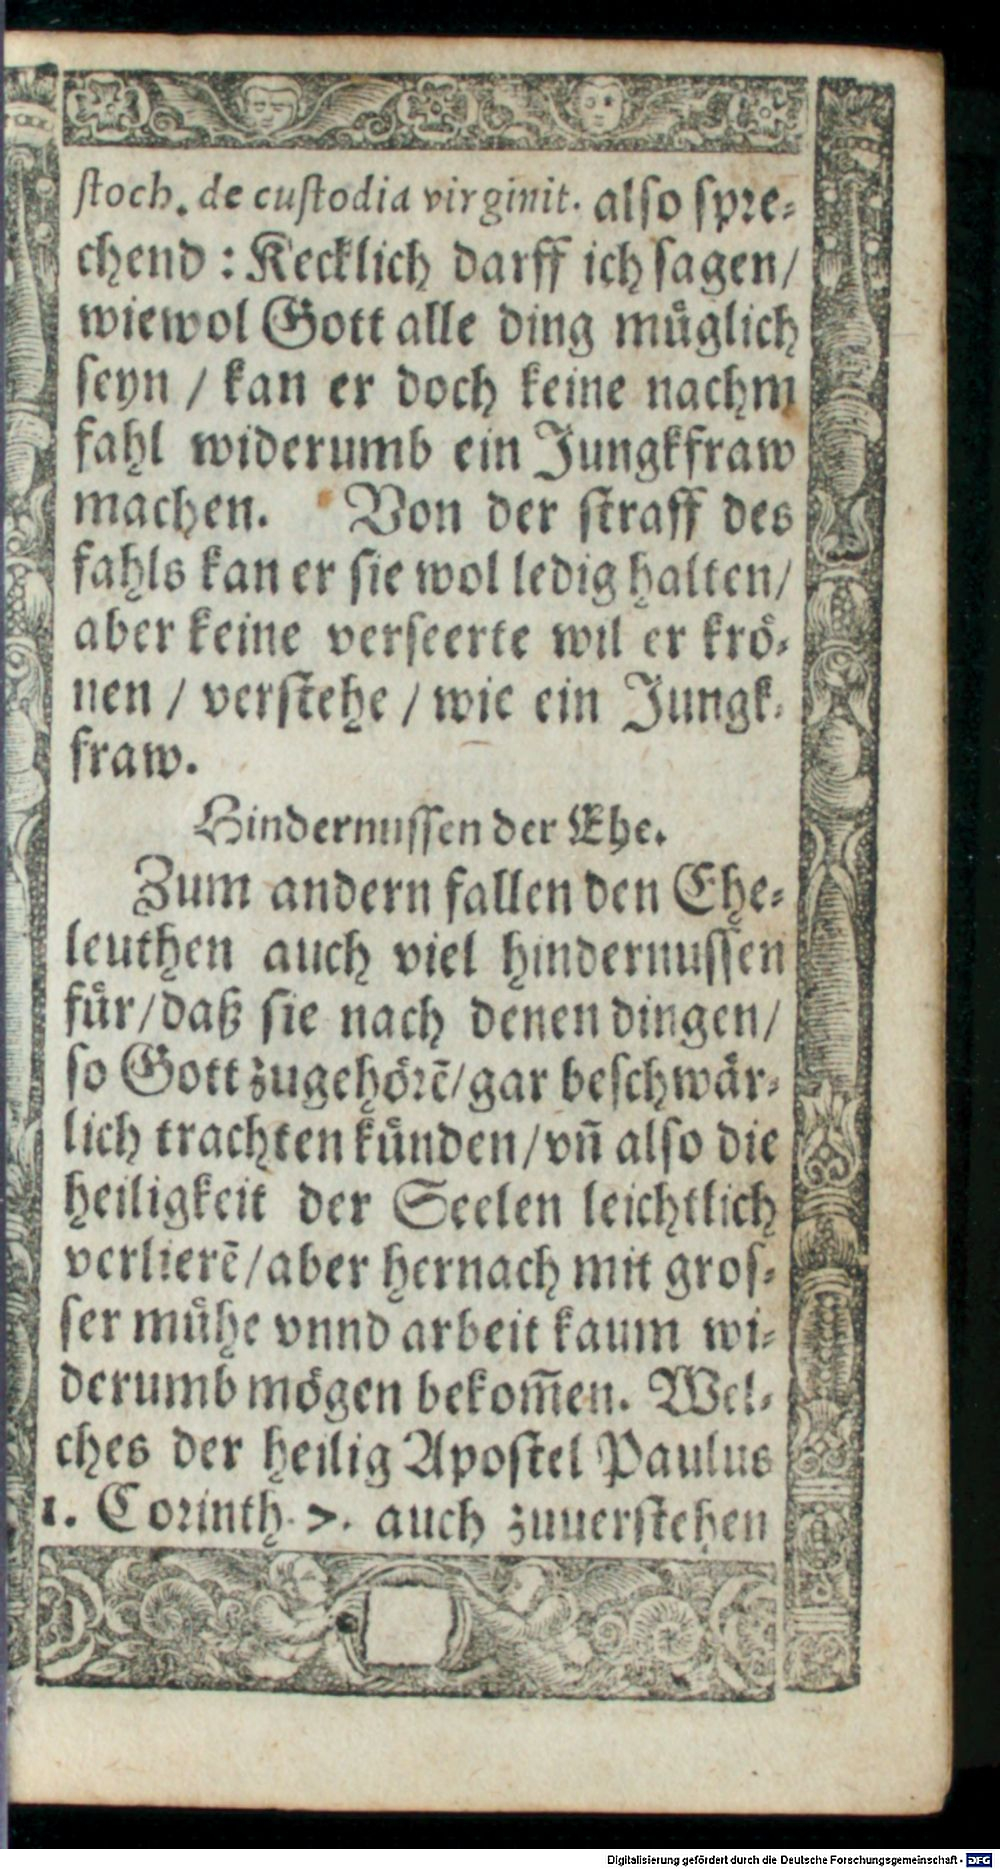 ſtoch. de cuſtodia virginit. alſo ſpre⸗
chend : Kecklich darff ich ſagen/
wiewol Gott alle ding muͤglich
ſeyn / kan er doch keine nachm
fahl widerumb ein Jungkfraw
machen. Von der ſtraff des
fahls kan er ſie wol ledig halten/
aber keine verſeerte wil er kroͤ⸗
nen / verſtehe / wie ein Jungk⸗
fraw.
Hindernuſſen der Ehe.
Zum andern fallen den Ehe⸗
leuthen auch viel hindernuſſen
fuͤr/daß ſie nach denen dingen/
ſo Gott zugehoͤrē/gar beſchwaͤr⸗
lich trachten kuͤnden/vn̄ alſo die
heiligkeit der Seelen leichtlich
verlierē/aber hernach mit groſ⸗
ſer muͤhe vnnd arbeit kaum wi⸗
derumb moͤgen bekom̄en. Wel⸗
ches der heilig Apoſtel Paulus
1. Corinth. 7. auch zuuerſtehen
Digitalisierung gefördert durch die Deutsche Forschungsgemeinschaft - DFG